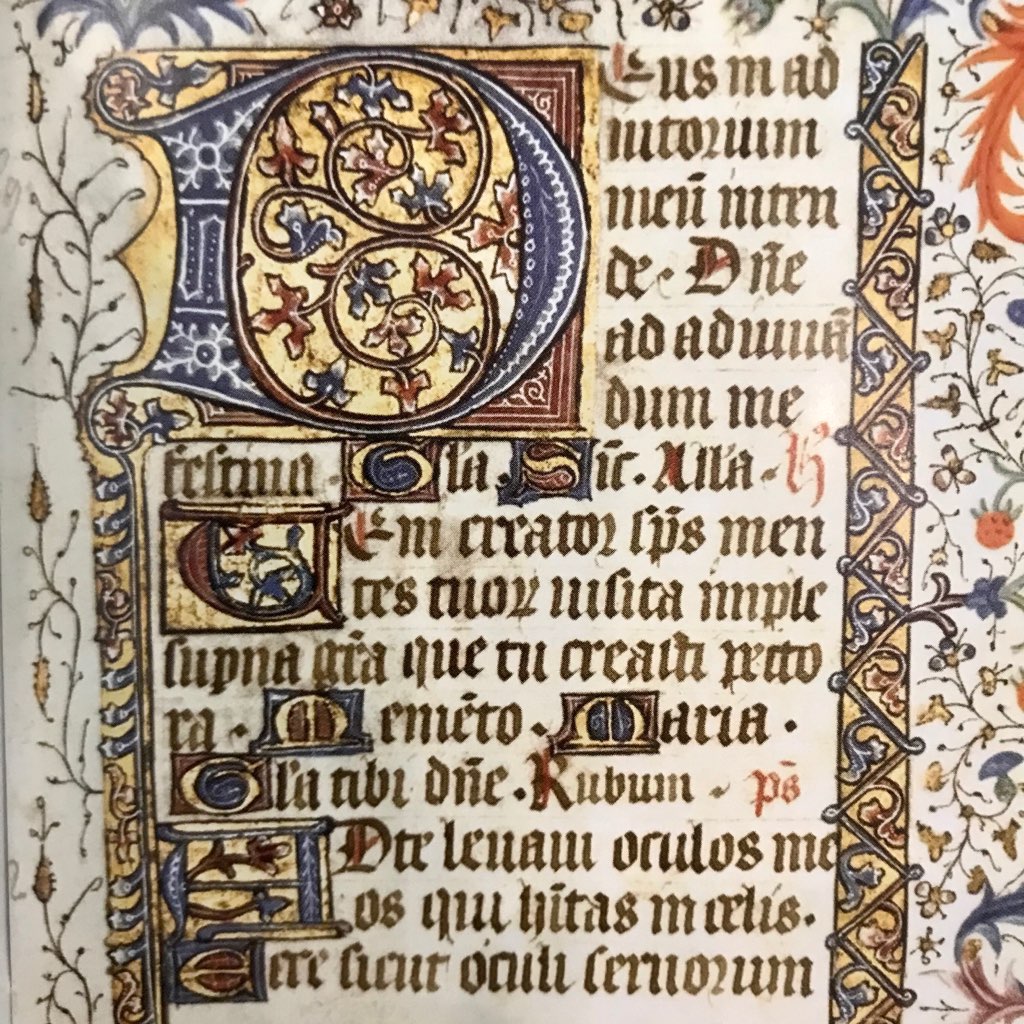 Deus in ad
iutorium
meū inten
de. Dn̄e
ad adiuuā
dum me
festina. Gl̄a. Sic̄. All̄a. h
Uem creator sp̄s men
tes tuoꝝ uisita imple
sup̄na gr̄a que tu creasti pecto
ra. Memēto. Maria.
Gl̄a tibi dn̄e. Rubum. ps̄
ADte leuaui oculos me
os qui hītas in celis.
Ecce sicut oculi seruorum